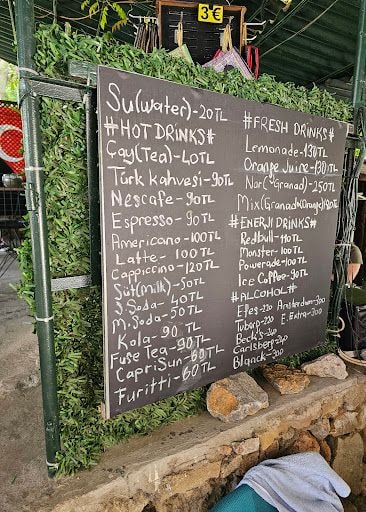 3 €
Su(water)-20TL
#HOT DRINKS#
Çay(Tea)-40TL
Türk kahvesi-90TL
Nescafe-90TL
Espresso-90TL
Americano-100TL
Latte-100TL
Cappiccino-120TL
Süt(milk)-50TL
S.Soda-40TL
M.Soda-50TL
Kola-90TL
Fuse Tea-90TL
Capri Sun-60TL
Furitti-60TL
#FRESH DRINKS#
Lemonade-130TL
Orange Juice-130TL
Nar(Granad)-250TL
#ENERJİ DRINKS#
Redbull-110TL
Monster-100TL
Powerade-100TL
Ice Coffee-90TL
#ALCOHOL#
Efes-220 Amsterdam-300
Tuborg-220 E.Extra-300
Beck's-240
Carlsberg-240
Blanck-300